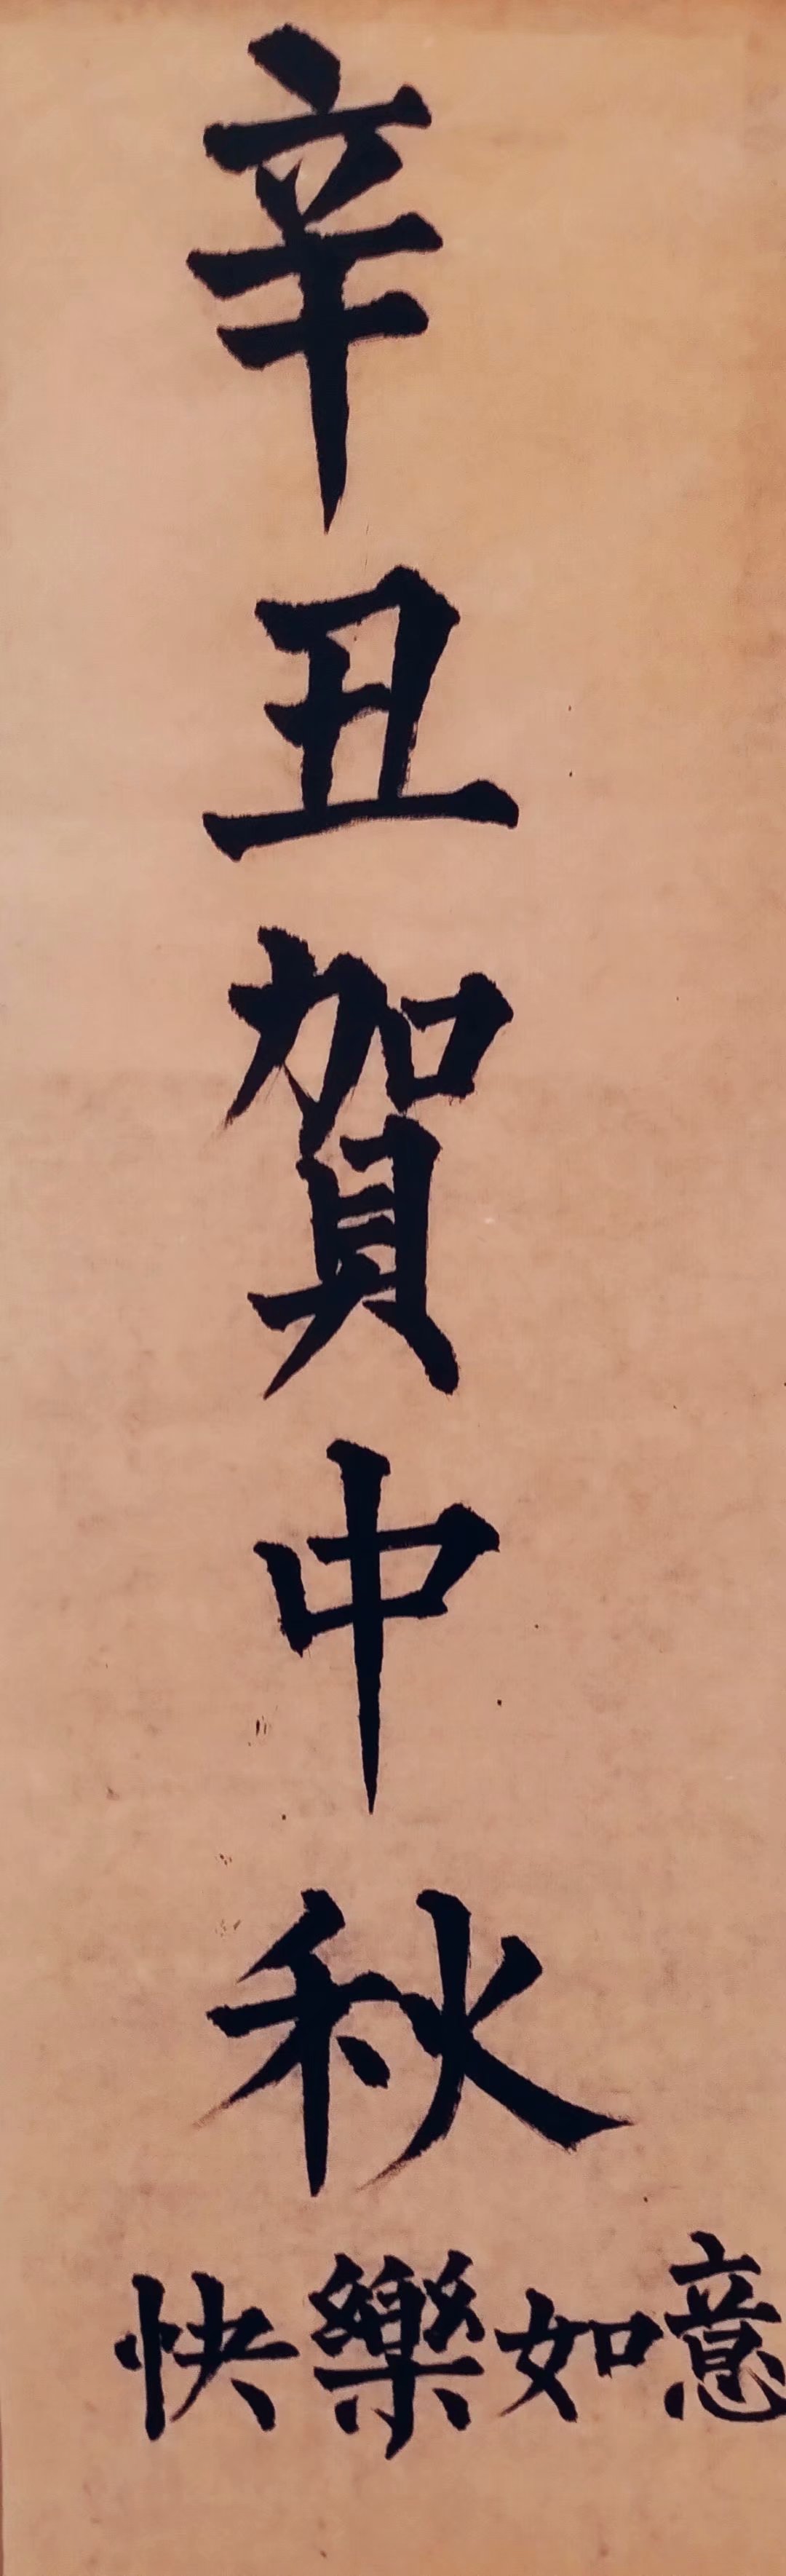 辛丑賀中秋
快樂如意